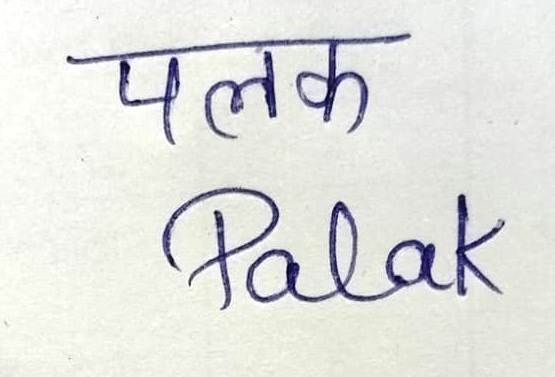 पलक
Palak